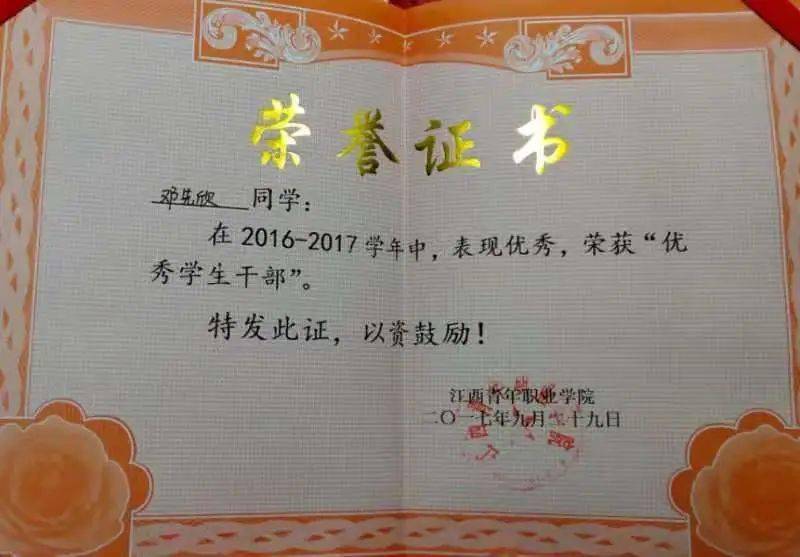 荣誉证书
邓先欣 同学：
在 2016-2017 学年中，表现优秀，荣获“优
秀学生干部”。
特发此证，以资鼓励！
江西青年职业学院
二〇一七年九月二十九日